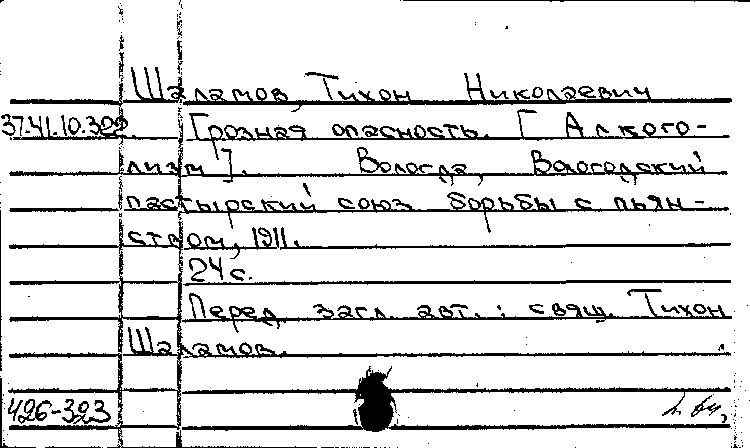 Шаламов, Тихон Николаевич
37.41.10.322. Грозная опасность. [Алкого-
лизм]. Вологда, Вологодский
пастырский союз борьбы с пьян-
ством, 1911.
24 с.
Перед загл. авт.: свящ. Тихон
Шаламов.
426-323